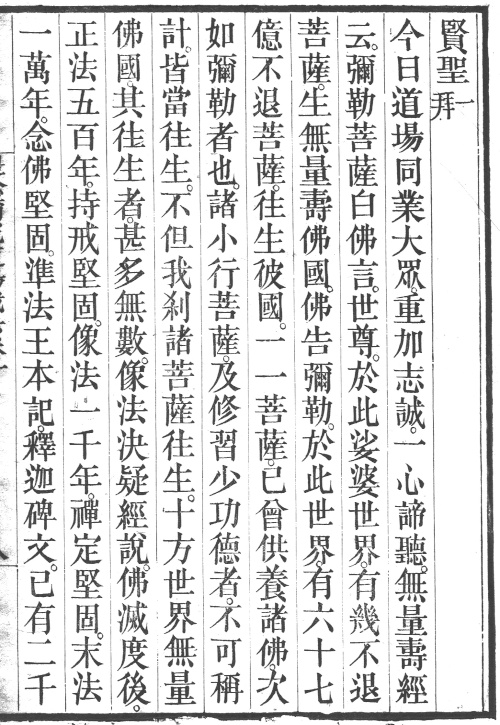 賢聖一拜
今日道場同業大眾。重加志誠。一心諦聽。無量壽經
云。彌勒菩薩白佛言。世尊。於此娑婆世界。有幾不退
菩薩。生無量壽佛國。佛告彌勒。於此世界。有六十七
億不退菩薩。往生彼國。一一菩薩。已曾供養諸佛。次
如彌勒者也。諸小行菩薩。及修習少功德者。不可稱
計。皆當往生。不但我剎諸菩薩往生。十方世界無量
佛國。其往生者。甚多無數。像法決疑經說。佛滅度後。
正法五百年。持戒堅固。像法一千年。禪定堅固。末法
一萬年。念佛堅固。準法王本記。釋迦碑文。已有二千